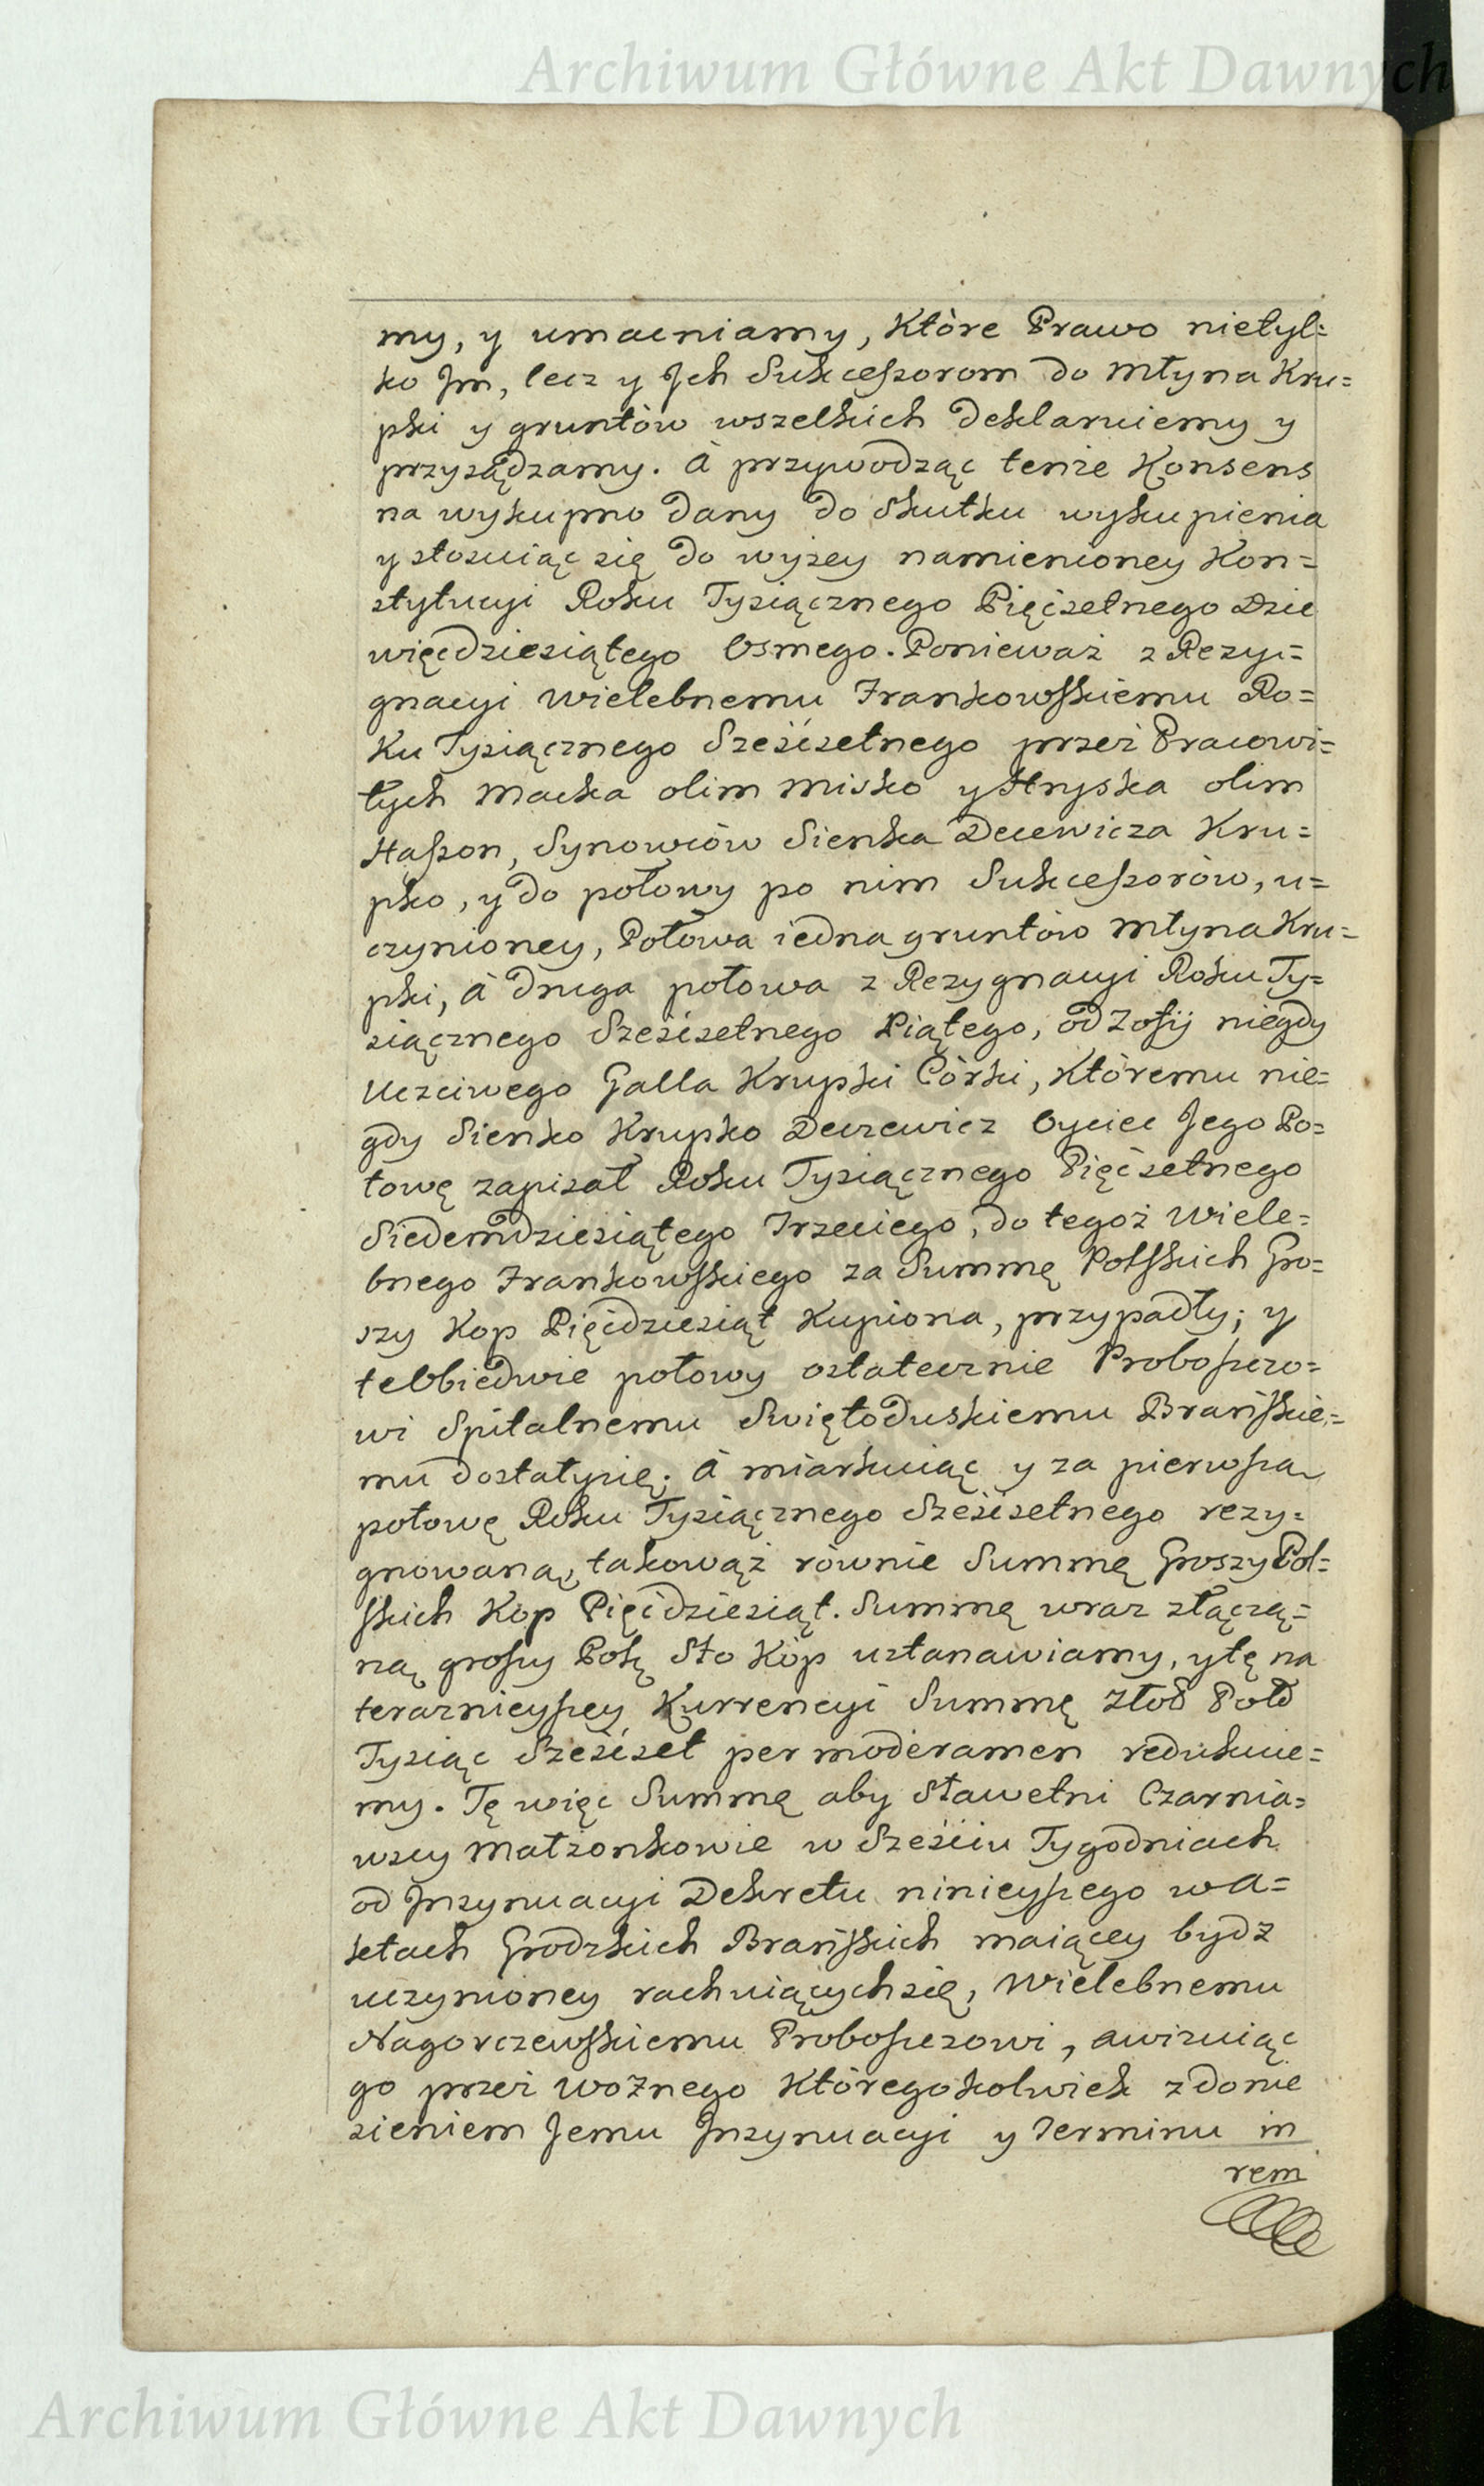 Archiwum Główne Akt Dawnych
my, y umacniamy, Które Prawo nietyl=
ko Jm, lecz y Jch Sukceßorom do Młyna Kru=
pki y gruntów wszelkich deklaruiemy y
przysądzamy. à przywodząc tenże Konsens
na wykupno dany do Skutku wykupienia
y stosuiąc się do wyżey namienioney Kon=
stytucyi Roku Tysiącznego Pięćsetnego Dzie
więćdziesiątego Osmego. Ponieważ z Rezy=
gnacyi Wielebnemu Frankowskiemu Ro=
ku Tysiącznego Sześćsetnego przez Pracowi=
tych Maćka olim Misko y Hryska olim
Haßon, Synowców Sieńka Decewicza Kru=
pko, y do połowy po nim Sukceßorów, u=
czynioney, Połowa iedna gruntów Młyna Kru=
pki, à druga połowa z Rezygnacyi Roku Ty=
siącznego Sześćsetnego Piątego, od Zofij niegdy
Uczciwego Galla Krupki Córki, Któremu nie=
gdy Sieńko Krupko Deczewicz Oyciec Jego Po=
łowę zapisał Roku Tysiącznego Pięćsetnego
Siedemdziesiątego Trzeciego, do tegoż Wiele=
bnego Frankowskiego za Summę Polskich Gro=
szy Kop Pięćdziesiąt Kupiona, przypadły; y
te Obiedwie połowy ostatecznie Proboszczo=
wi Spitalnemu Swiętoduskiemu Brańskie=
mu dostały się; à miarkuiąc y za pierwszą
połowę Roku Tysiącznego Sześćsetnego rezy=
gnowaną, takowąż równie Summę Groszy Pol=
skich Kop Pięćdziesiąt. Summę wraz złączo=
ną groszy Polś. Sto Kop ustanawiamy, y tę na
teraznieyszey Kurrencyi Summę Złod Pold
Tysiąc Sześćset per moderamen redukuie=
my. Tę więc Summę aby Sławetni Czarnia=
wscy Małżonkowie w Sześciu Tygodniach
od Jnsynuacyi Dekretu ninieyszego w A=
ktach Grodzkich Brańskich maiącey bydź
uczynioney rachuiących się, Wielebnemu
Nagorczewskiemu Proboszczowi, awizuiąc
go przez Woźnego Któregokolwiek z donie
sieniem Jemu Jnsynuacyi y Terminu in
rem
Archiwum Główne Akt Dawnych